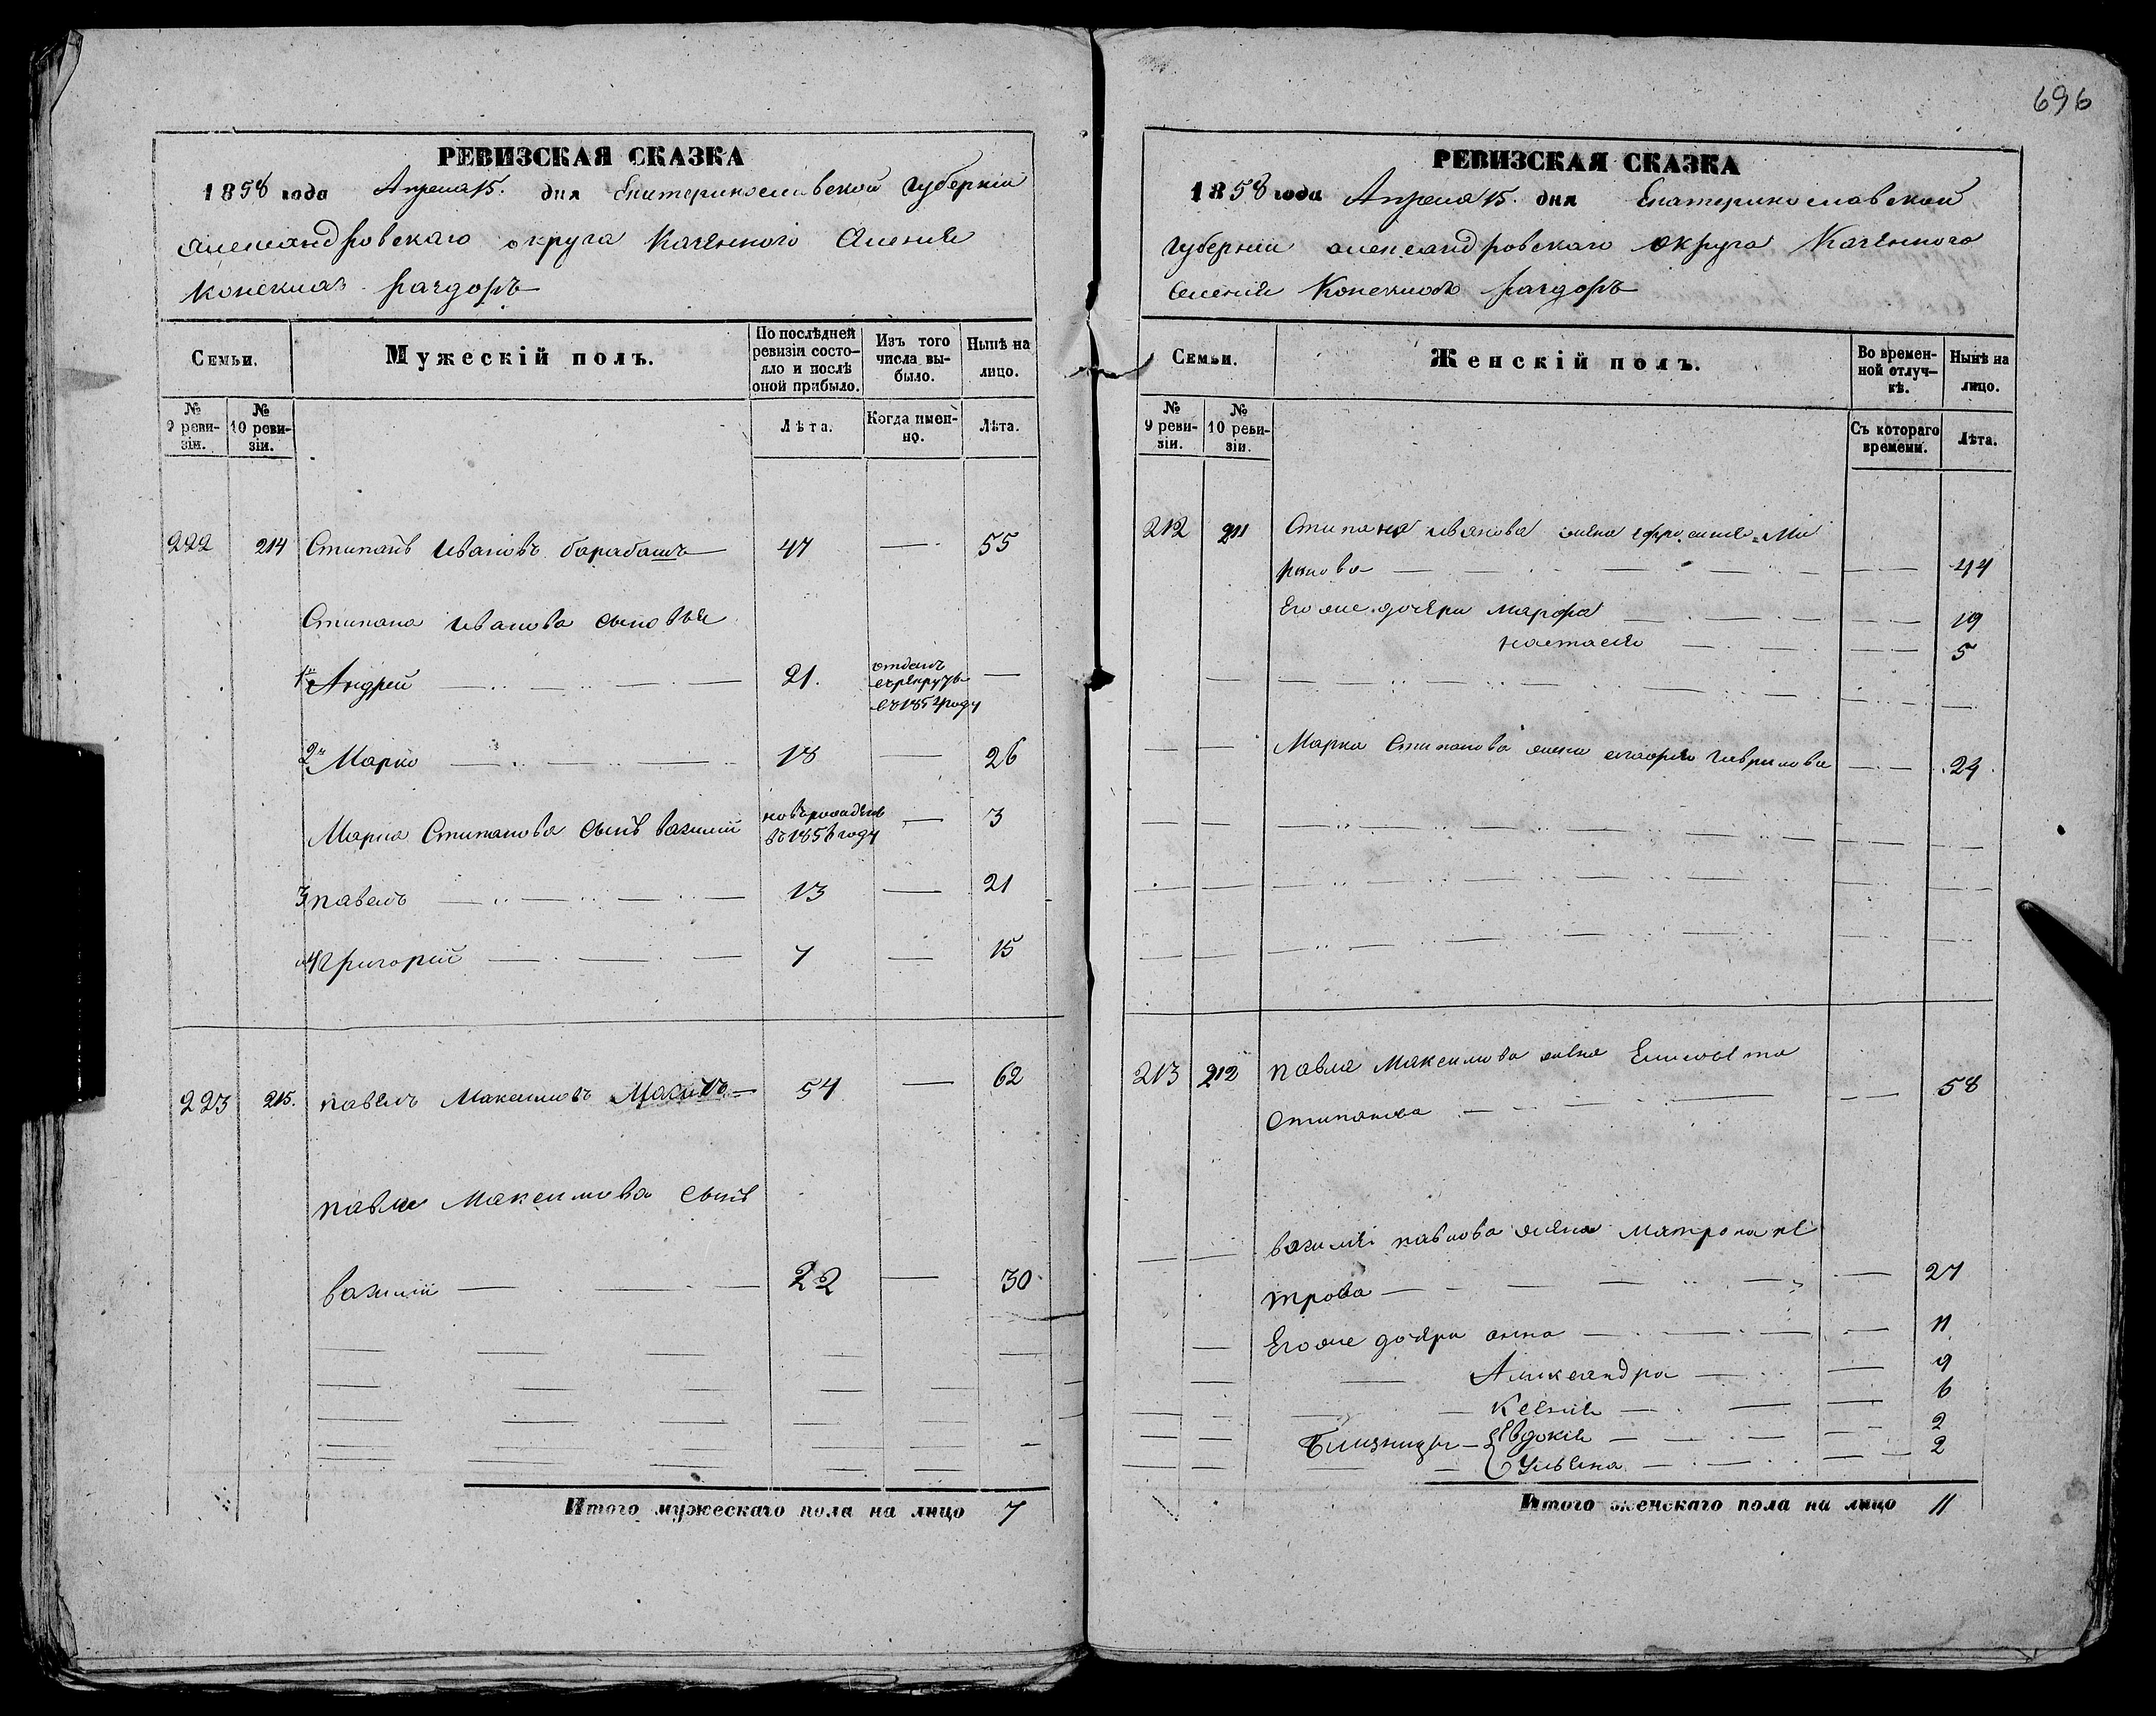 696
РЕВИЗСКАЯ СКАЗКА
1858 года Апреля 15. дня Екатеринославской губерніи
александровскаго округа Казенного Селенія
Конскихъ раздоръ
Семьи.
Мужескій полъ.
По послѣдней ревизіи состояло и послѣ оной прибыло.
Изъ того числа выбыло.
Нынѣ на лицо.
№ 9 ревизіи.
№ 10 ревизіи.
Лѣта.
Когда именно.
Лѣта.
222 214 Стипанъ Ивановъ барабашъ 47 — 55
Стипана Иванова сыновья
1й Андрей 21. отданъ в рекруты въ 1854 году —
2й Марко 18 — 26
Марка Стипанова сынъ василий новорожденъ въ 1856 году — 3
3 павелъ 13 — 21
4 григорій 7 — 15
223 215. павелъ Максимовъ 54 — 62
павла Максимова сынъ
василий 22 — 30
Итого мужескаго пола на лицо 7
РЕВИЗСКАЯ СКАЗКА
1858 года Апреля 15. дня Екатеринославской
губерніи александровскаго округа Казенного
селенія Конскихъ раздоръ
Семьи.
Женскій полъ.
Во временной отлучкѣ.
Нынѣ на лицо.
№ 9 ревизіи.
№ 10 ревизіи.
Съ котораго времени.
Лѣта.
212 211 Стипана иванова жена ефросинія Ми
ркова — 44
Его же дочери марфа — 19
настасія — 5
Марка Стипанова жена гаврилова — 24
213 212 павла Максимова жена Елисавета
Стипанова — 58
василія павлова жена матрона пе
трова — 27
Его же дочери анна — 11
Александра — 9
Ксенія — 6
Близницы { Евдокія — 2
Ульяна — 2
Итого женскаго пола на лицо 11